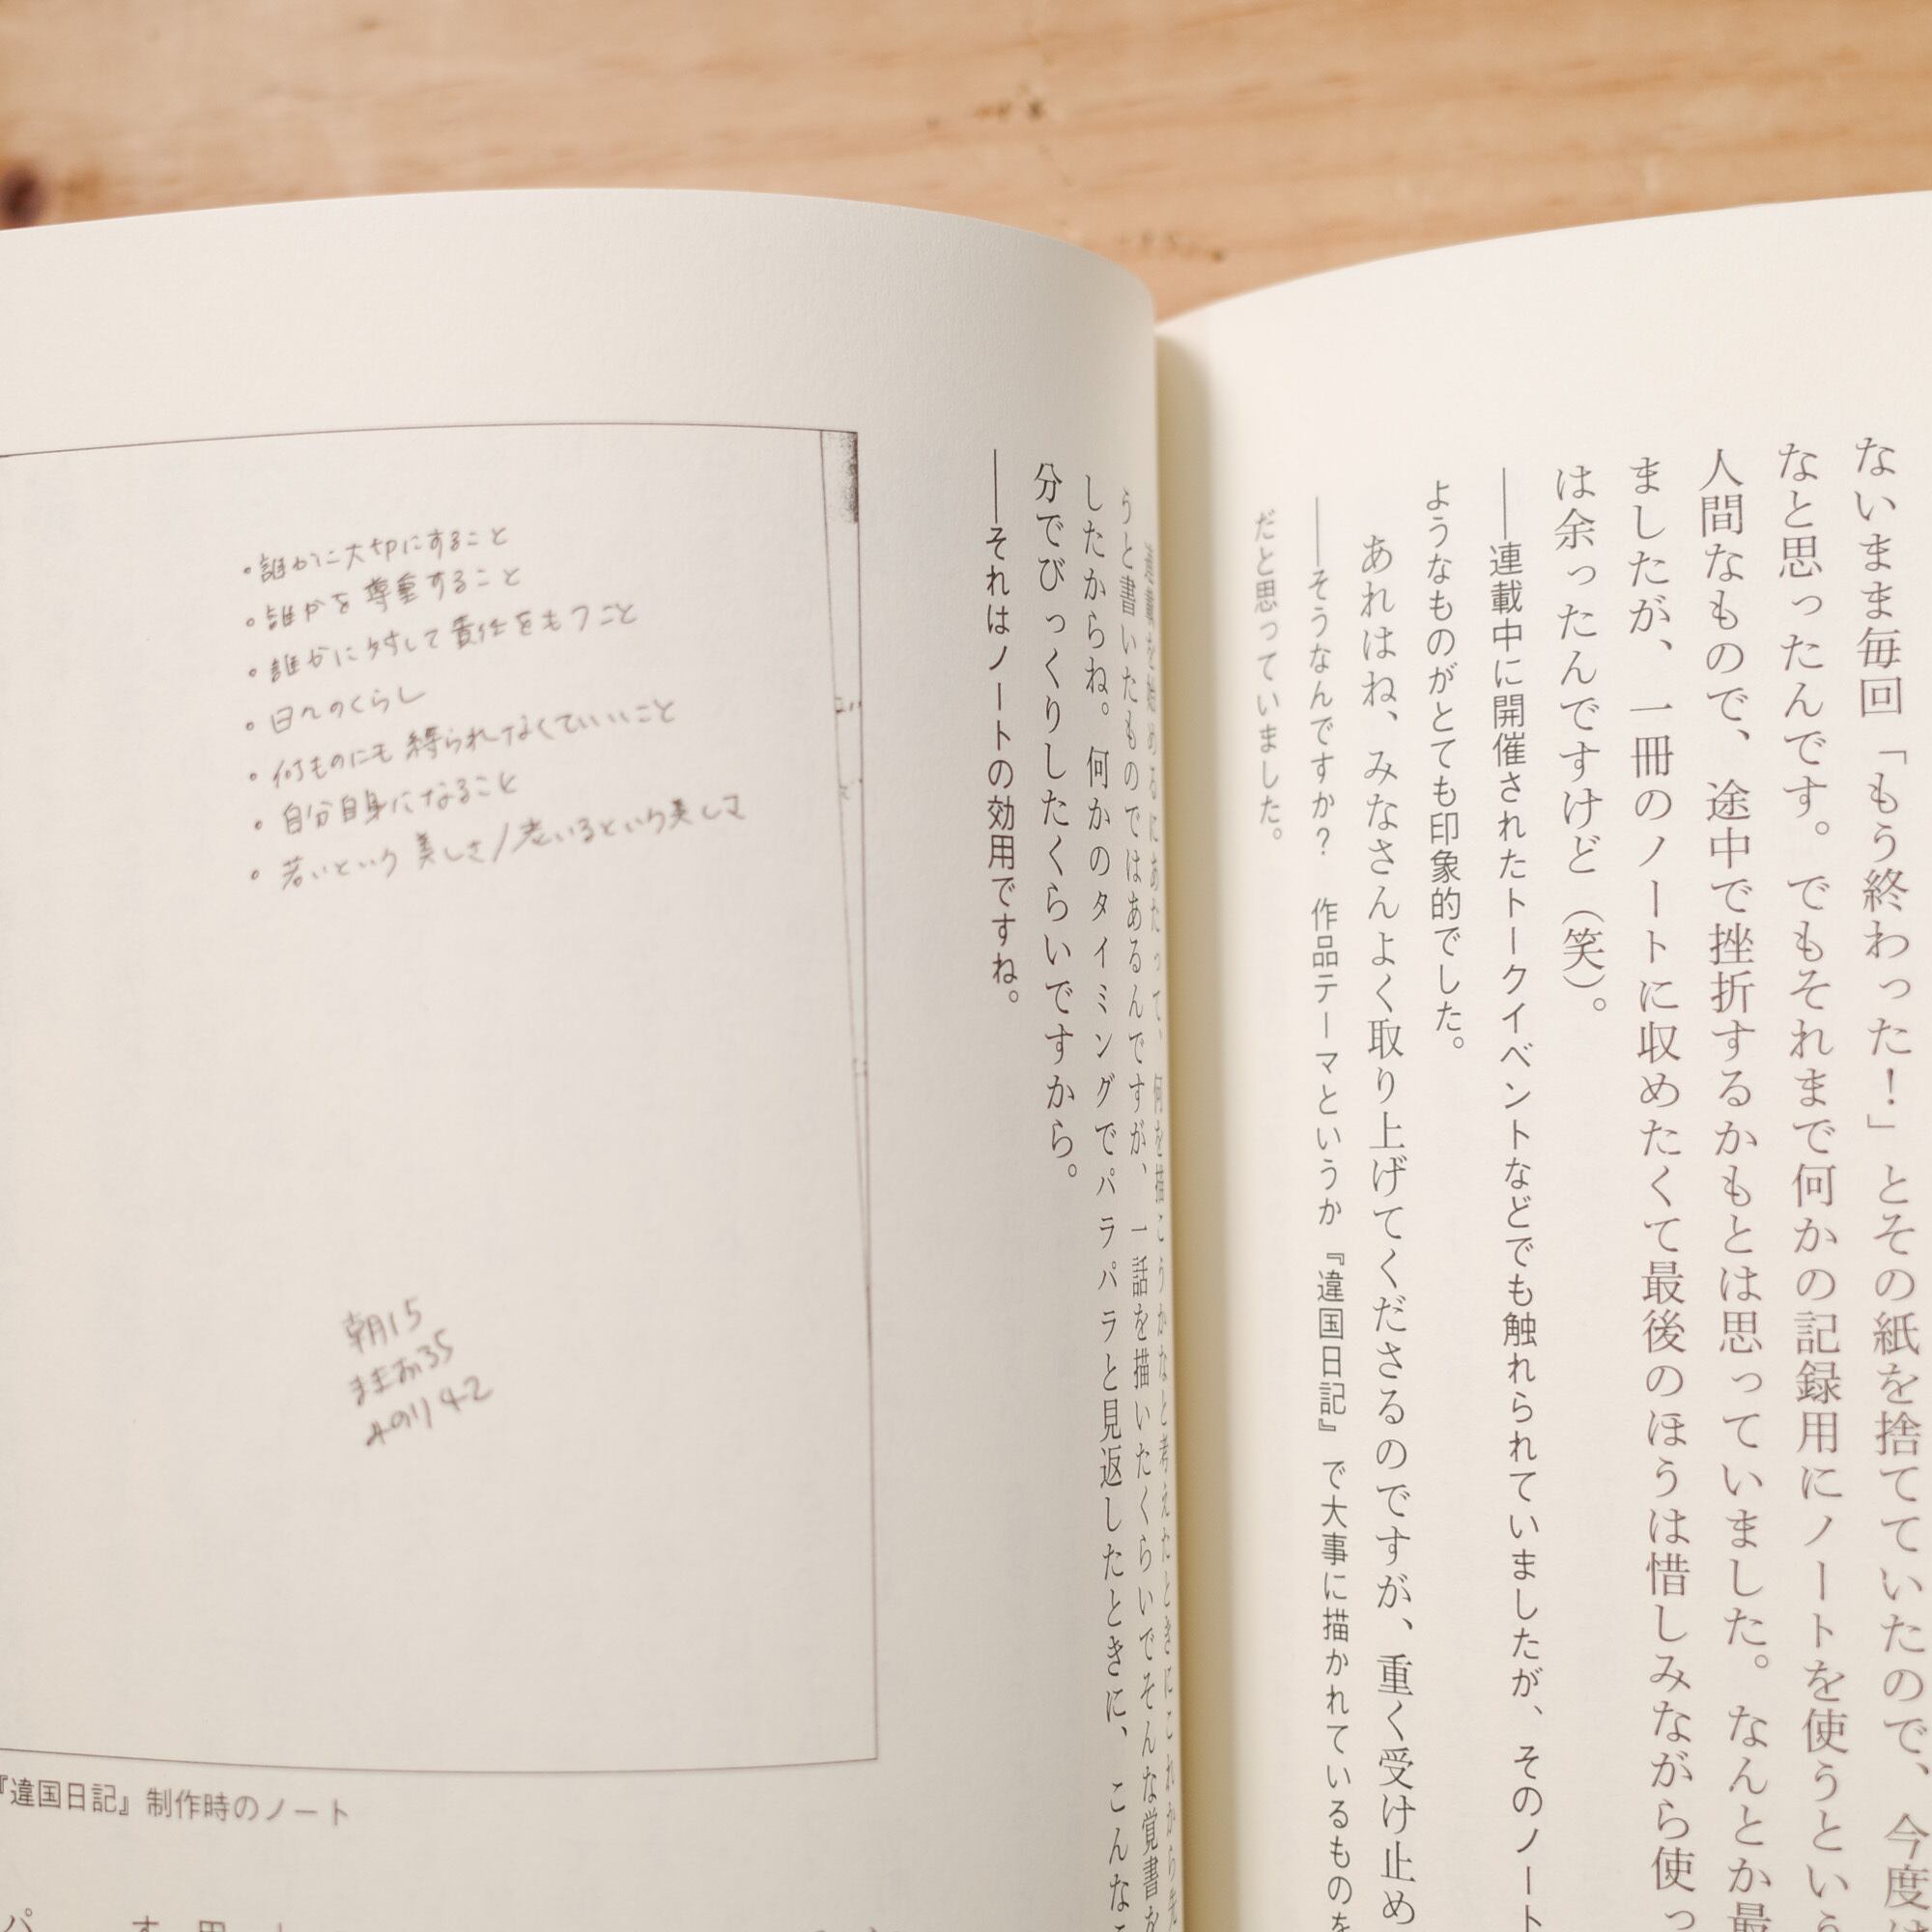 ないまま毎回「もう終わった！」とその紙を捨てていたので、今度は
なと思ったんです。でもそれまで何かの記録用にノートを使うという
人間なもので、途中で挫折するかもとは思っていました。なんとか最
ましたが、一冊のノートに収めたくて最後のほうは惜しみながら使っ
は余ったんですけど（笑）。
――連載中に開催されたトークイベントなどでも触れられていましたが、そのノート
ようなものがとても印象的でした。
あれはね、みなさんよく取り上げてくださるのですが、重く受け止め
――そうなんですか？　作品テーマというか『違国日記』で大事に描かれているものを
だと思っていました。
連載を始めるにあたって、何を描こうかなと考えたときにこれから先
うと書いたものではあるんですが、一話を描いたくらいでそんな覚書を
したからね。何かのタイミングでパラパラと見返したときに、こんなこ
分でびっくりしたくらいですから。
――それはノートの効用ですね。
・誰かに大切にすること
・誰かを尊重すること
・誰かに対して責任をもつこと
・日々のくらし
・何ものにも縛られなくていいこと
・自分自身になること
・若いという美しさ/老いるという美しさ
朝15
まきお35
みのり42
『違国日記』制作時のノート